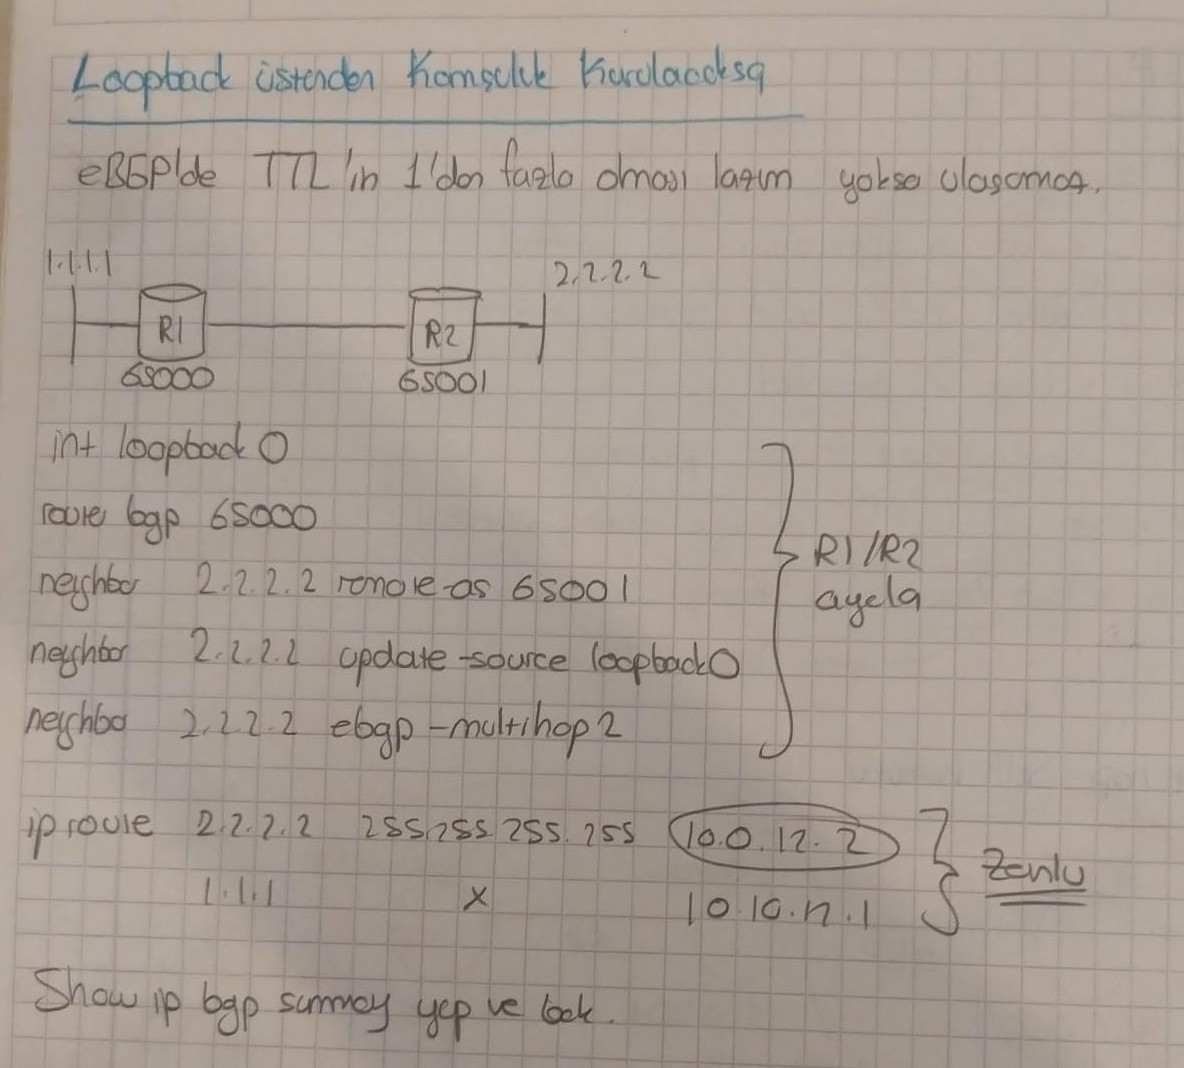 Loopback üstenden Komşuluk Kurulacaksa
eBGP'de TTL'in 1'den fazla olması lazım yoksa ulaşamaz.
1.1.1.1
2.2.2.2
R1
R2
65000
65001
int loopback 0
route bgp 65000
neighbor 2.2.2.2 remote-as 65001
neighbor 2.2.2.2 update-source loopback0
neighbor 2.2.2.2 ebgp-multihop 2
R1/R2
ayela
ip route 2.2.2.2 255.255.255.255 10.0.12.2
1.1.1 x 10.10.12.1
Zorunlu
Show ip bgp summary yap ve bak.